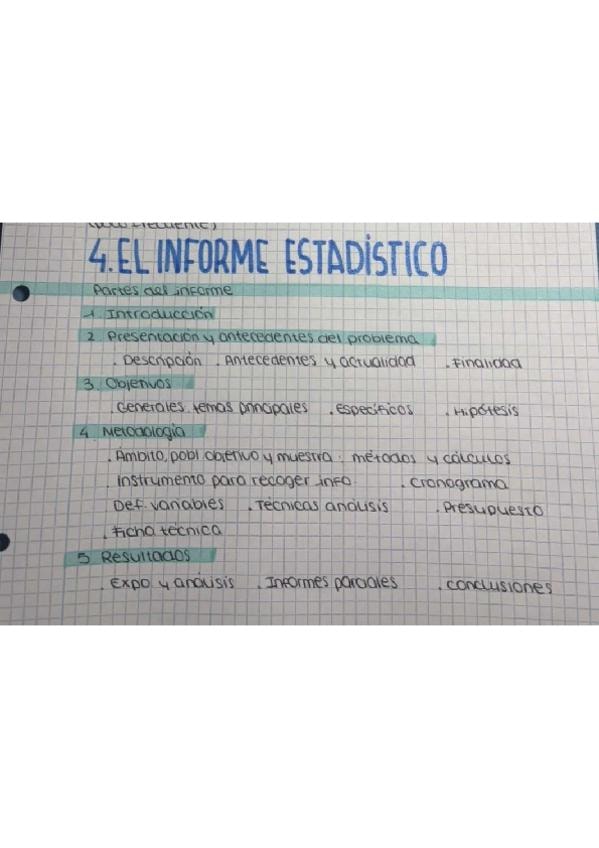 (poco frecuente)
4. EL INFORME ESTADÍSTICO
Partes del informe
1. Introducción
2. Presentación y antecedentes del problema
. Descripción . Antecedentes y actualidad . Finalidad
3. Objetivos
. Generales: temas principales . Específicos . Hipótesis
4. Metodología
. Ámbito, pobl. objetivo y muestra: métodos y cálculos
. Instrumento para recoger info. . Cronograma
Def. variables . Técnicas análisis . Presupuesto
. Ficha técnica
5. Resultados
. Expo y análisis . Informes parciales . Conclusiones